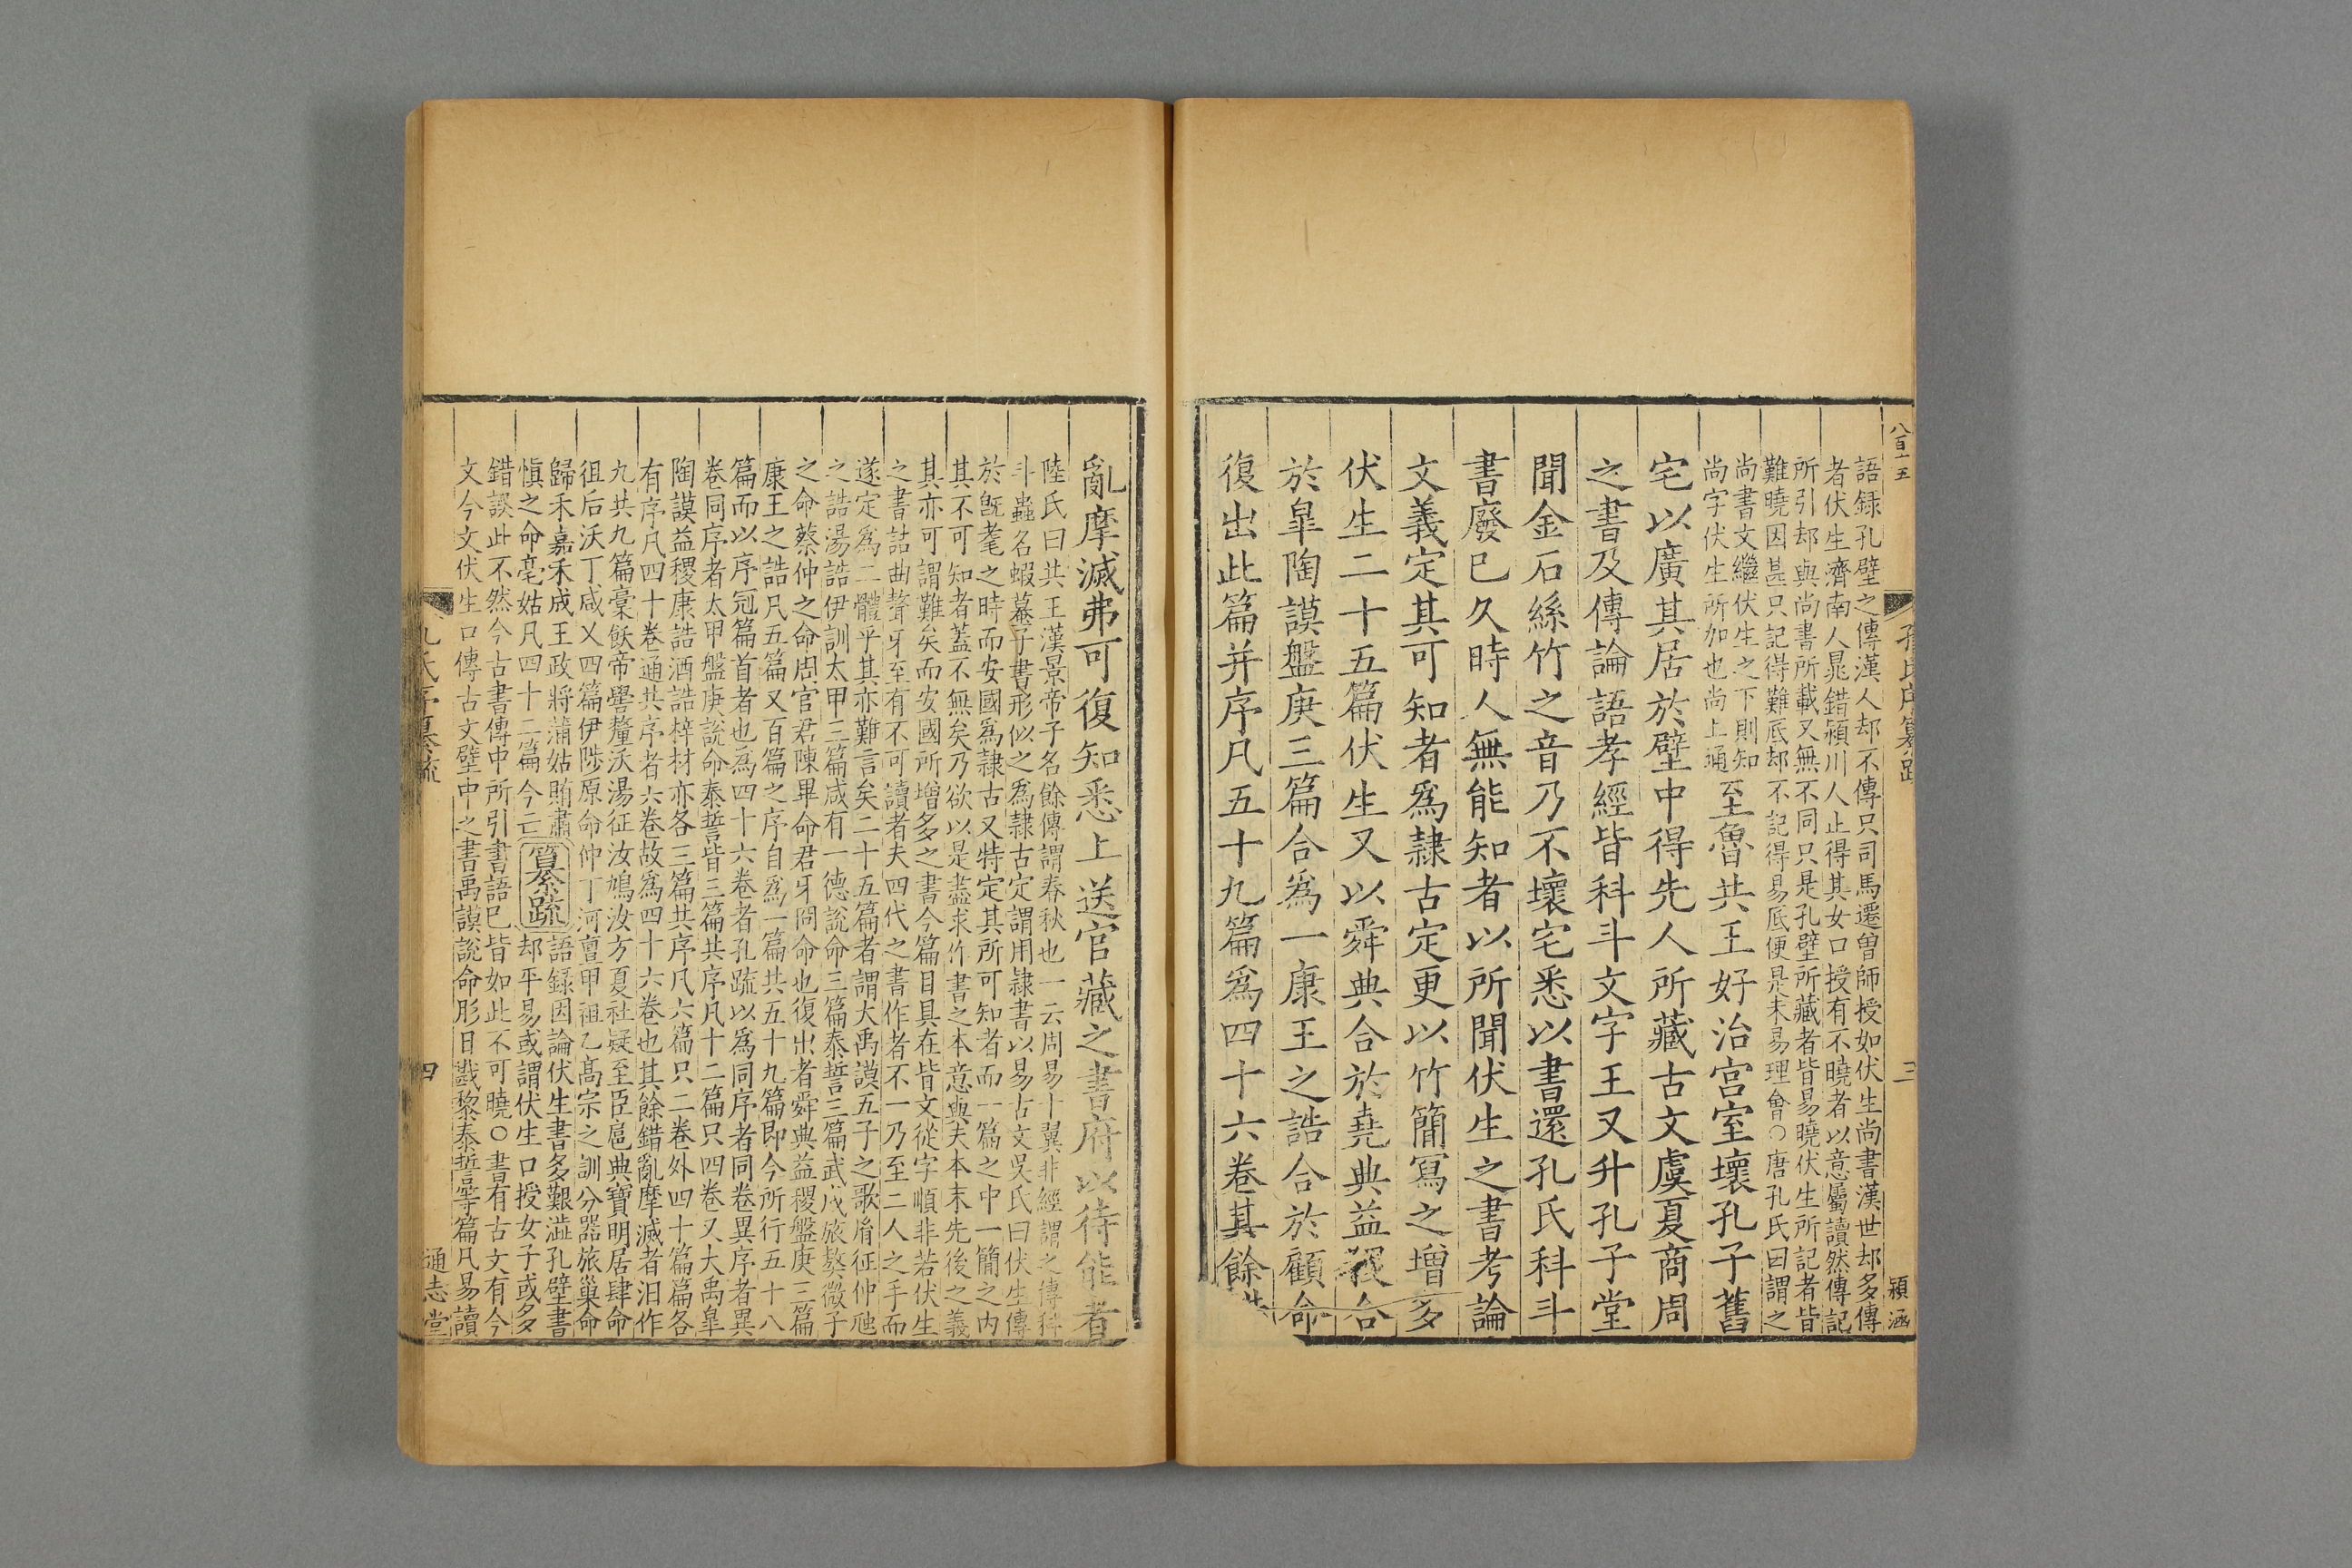 八百十五
孔氏序纂疏
三
潁涵
語録孔壁之傳漢人却不傳只司馬遷曽師授如伏生尚書漢世却多傳
者伏生濟南人晁錯潁川人止得其女口授有不曉者以意屬讀然傳記
所引却與尚書所載又無不同只是孔壁所藏者皆易曉伏生所記者皆
難曉因甚只記得難底却不記得易底便是未易理會○唐孔氏曰謂之
尚書文繼伏生之下則知
尚字伏生所加也尚上通
至魯共王好治宮室壞孔子舊
宅以廣其居於壁中得先人所藏古文虞夏商周
之書及傳論語孝經皆科斗文字王又升孔子堂
聞金石絲竹之音乃不壞宅悉以書還孔氏科斗
書廢已久時人無能知者以所聞伏生之書考論
文義定其可知者爲隸古定更以竹簡寫之增多
伏生二十五篇伏生又以舜典合於堯典益稷合
於臯陶謨盤庚三篇合爲一康王之誥合於顧命
復出此篇并序凡五十九篇爲四十六卷其餘錯
亂摩滅弗可復知悉上送官藏之書府以待能者
陸氏曰共王漢景帝子名餘傳謂春秋也一云周易十翼非經謂之傳科
斗蟲名蝦蟇子書形似之為隸古定謂用隸書以易古文吳氏曰伏生傳
於旣耄之時而安國爲隸古又特定其所可知者而一篇之中一簡之內
其不可知者蓋不無矣乃欲以是盡求作書之本意與夫本末先後之義
其亦可謂難矣而安國所增多之書今篇目具在皆文從字順非若伏生
之書詰曲聱牙至有不可讀者夫四代之書作者不一乃至二人之手而
遂定爲二體乎其亦難言矣二十五篇者謂大禹謨五子之歌胤征仲虺
之誥湯誥伊訓太甲三篇咸有一德說命三篇泰誓三篇武成旅獒微子
之命蔡仲之命周官君陳畢命君牙冏命也復出者舜典益稷盤庚三篇
康王之誥凡五篇又百篇之序自爲一篇共五十九篇即今所行五十八
篇而以序冠篇首者也爲四十六卷者孔疏以爲同序者同卷異序者異
卷同序者太甲盤庚說命泰誓皆三篇共序凡十二篇只四卷又大禹皐
陶謨益稷康誥酒誥梓材亦各三篇共序凡六篇只二卷外四十篇篇各
有序凡四十卷通共序者六卷故爲四十六卷也其餘錯亂摩滅者汨作
九共九篇槀飫帝嚳釐沃湯征汝鳩汝方夏社疑至臣扈典寶明居肆命
徂后沃丁咸乂四篇伊陟原命仲丁河亶甲祖乙高宗之訓分器旅巢命
歸禾嘉禾成王政將蒲姑賄肅
愼之命亳姑凡四十二篇今亡
纂疏
語録因論伏生書多艱澁孔壁書
却平易或謂伏生口授女子或多
錯誤此不然今古書傳中所引書語已皆如此不可曉○書有古文有今
文今文伏生口傳古文壁中之書禹謨說命肜日戡黎泰誓等篇凡易讀
孔氏序纂疏
四
通志堂